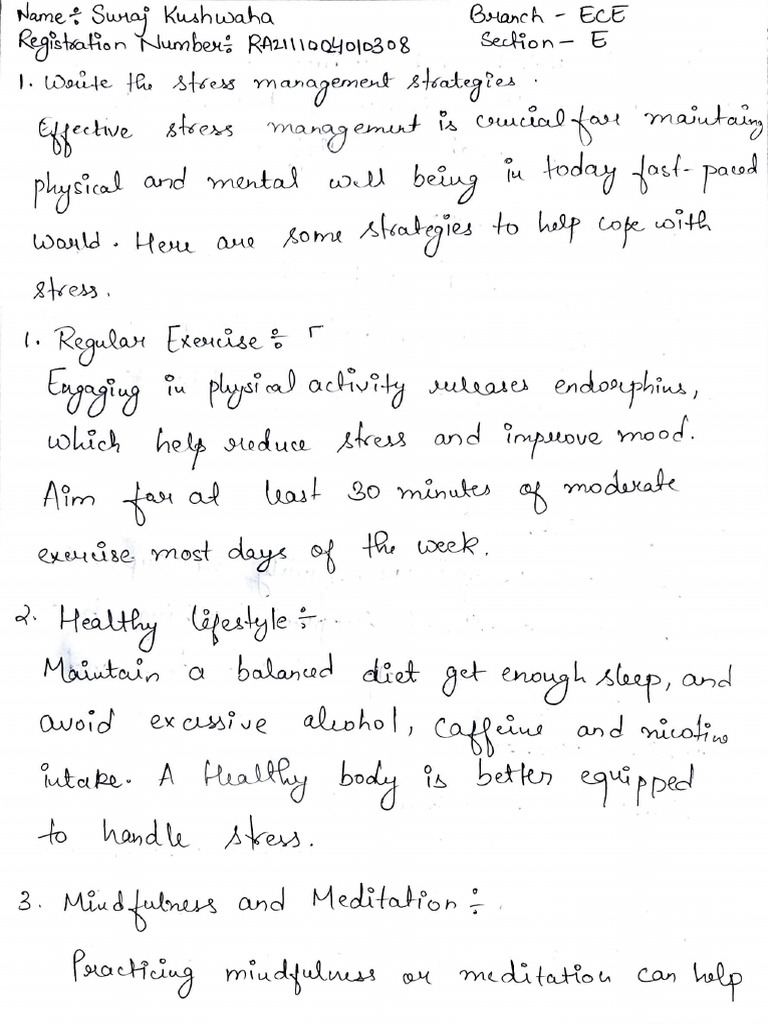 Name:- Suraj Kushwaha Branch - ECE
Registration Number:- RA2111004010308 Section - E
1. Write the stress management strategies.
Effective stress management is crucial for maintaing
physical and mental well being in today fast-paced
world. Here are some strategies to help cope with
stress.
1. Regular Exercise:-
Engaging in physical activity releases endorphins,
which help reduce stress and improve mood.
Aim for at least 30 minutes of moderate
exercise most days of the week.
2. Healthy lifestyle:-
Maintain a balanced diet get enough sleep, and
avoid excessive alcohol, caffeine and nicotine
intake. A Healthy body is better equipped
to handle stress.
3. Mindfulness and Meditation:-
Practicing mindfulness or meditation can help